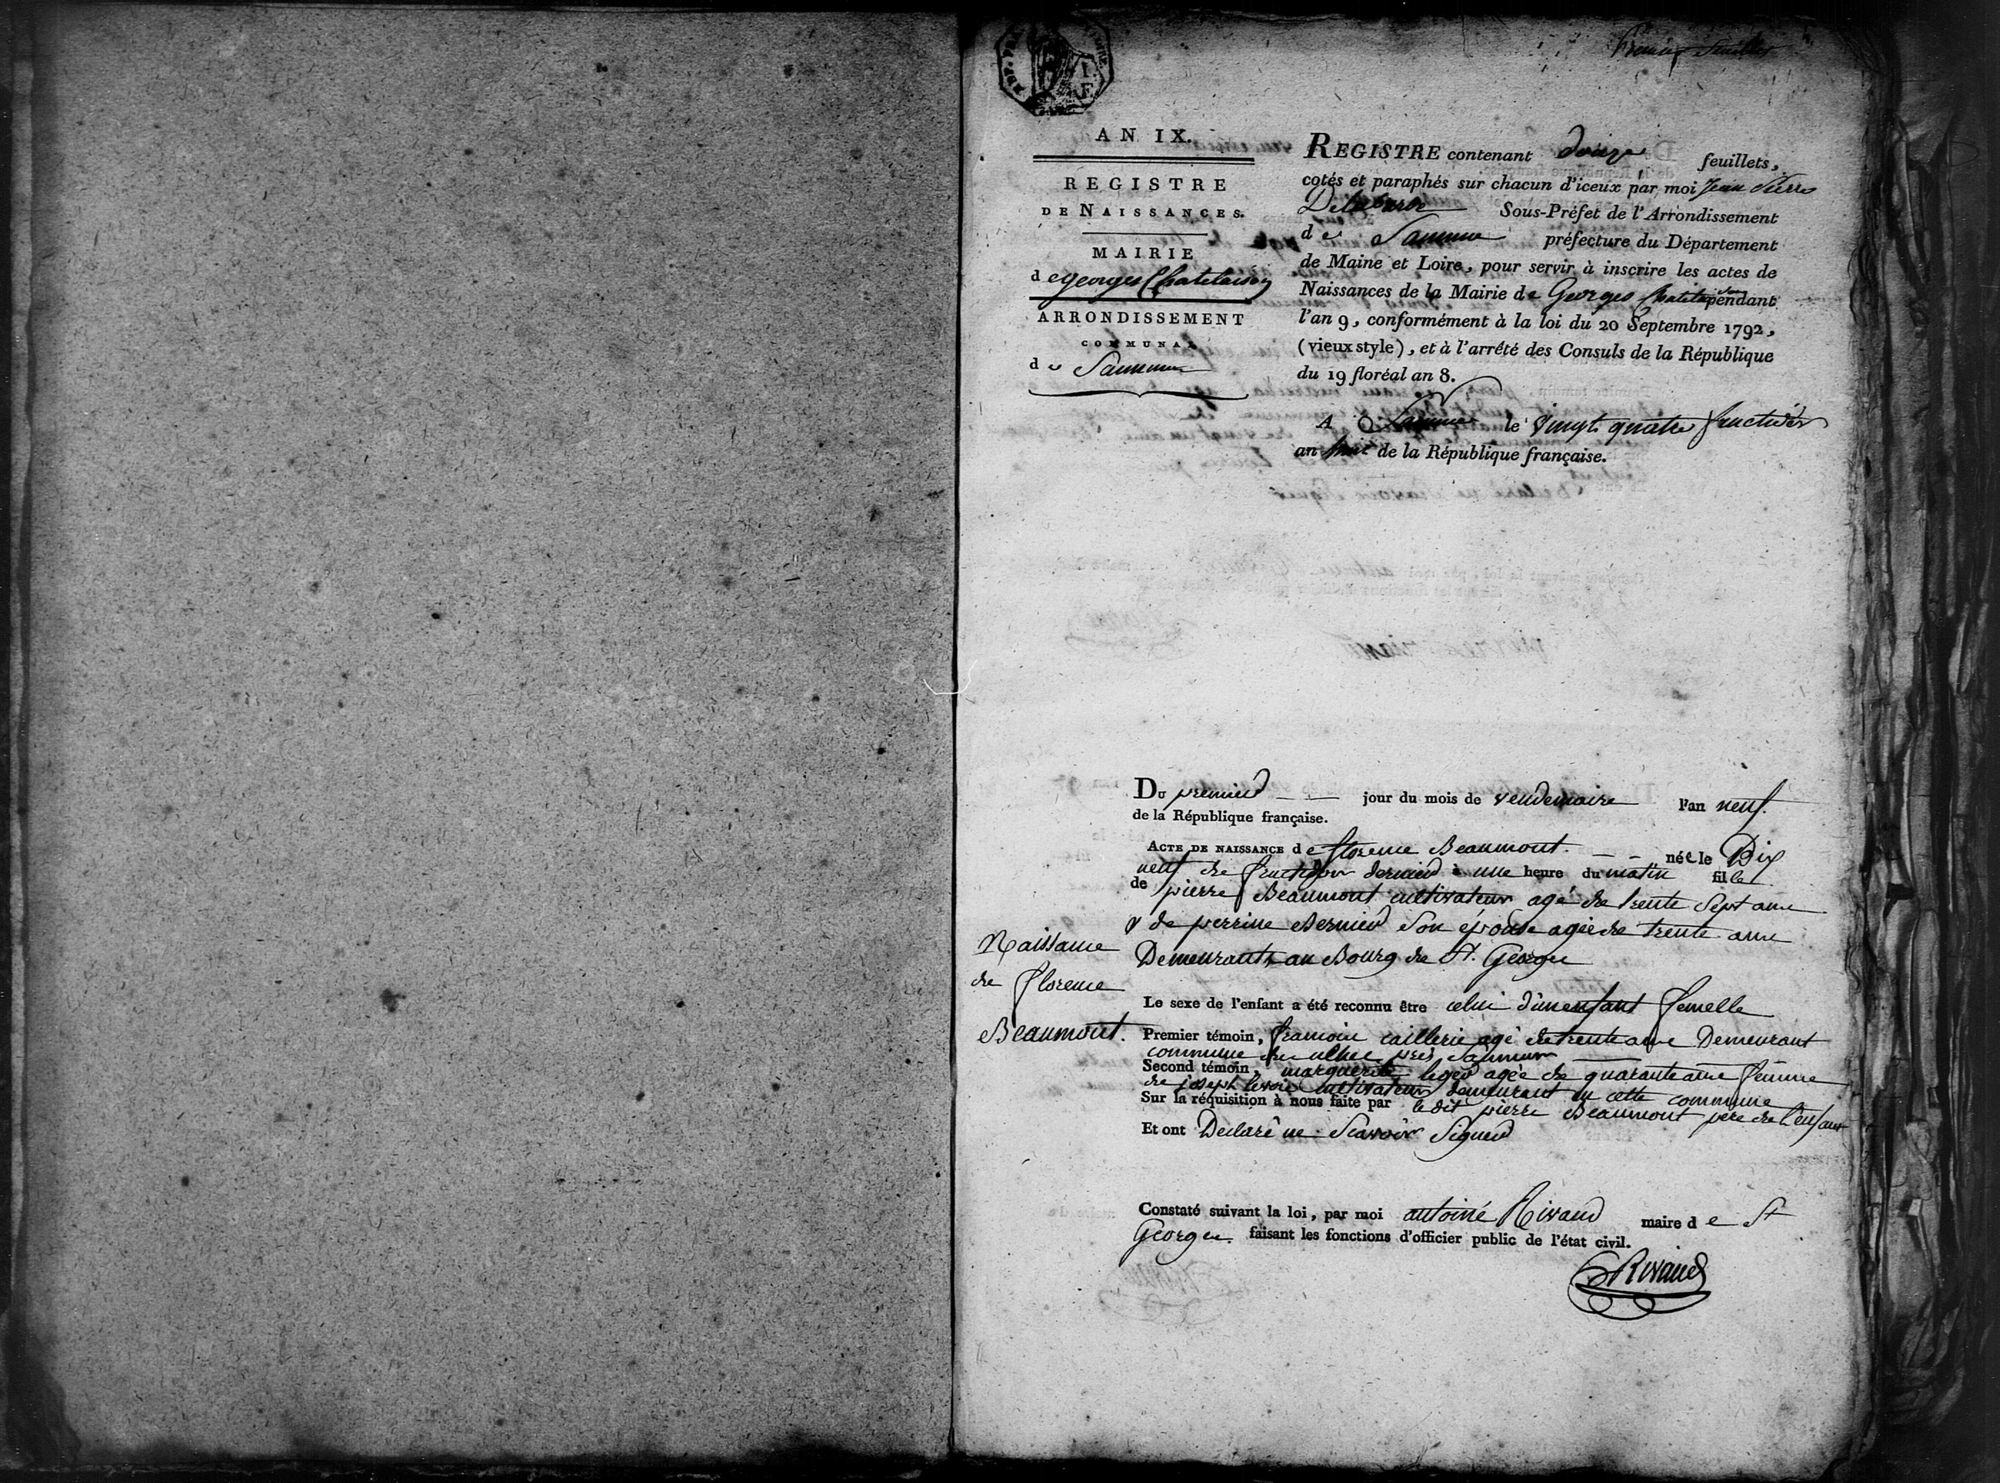 Premier feuillet
AN IX.
REGISTRE
DE NAISSANCES.
MAIRIE
de georges Chatelaison
ARRONDISSEMENT
COMMUNAL
de Saumur
REGISTRE contenant douze feuillets,
cotés et paraphés sur chacun d'iceux par moi Jean Pierre
Delabarbe Sous-Préfet de l'Arrondissement
de Saumur préfecture du Département
de Maine et Loire, pour servir à inscrire les actes de
Naissances de la Mairie de Georges Chatelaison pendant
l'an 9, conformément à la loi du 20 Septembre 1792,
(vieux style), et à l'arrêté des Consuls de la République
du 19 floréal an 8.
A Saumur le vingt quatre fructidor
an huit de la République française.
Du premier jour du mois de vendemaire l'an neuf.
de la République française.
ACTE DE NAISSANCE de florence Beaumont. née le Dix
neuf de fructidor dernier à une heure du matin fille
de pierre Beaumont cultivateur agé de trente Sept ans
& de perrine Bernier Son épouse agée de trente ans
Demeurants au Bourg de St. Georges
Naissance
de florence
Beaumont.
Le sexe de l'enfant a été reconnu être celui d'un enfant femelle
Premier témoin, francois caillerie agé de trente ans Demeurant
commune de près Saumur
Second témoin, marguerite leger agée de quarante ans femme
de joseph cultivateur demeurant en cette commune
Sur la réquisition à nous faite par le dit pierre Beaumont père de l'enfant
Et ont Declaré ne Scavoir Signer
Constaté suivant la loi, par moi antoine Rivaud maire de St
Georges. faisant les fonctions d'officier public de l'état civil.
Rivaud